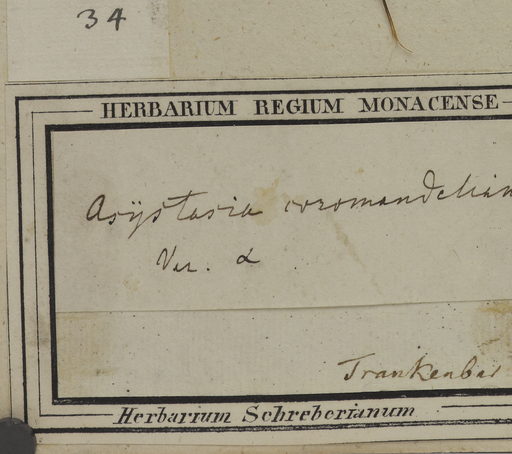 34
HERBARIUM REGIUM MONACENSE
Asÿstasia coromandelian
Var. α
Trankenbar
Herbarium Schreberianum